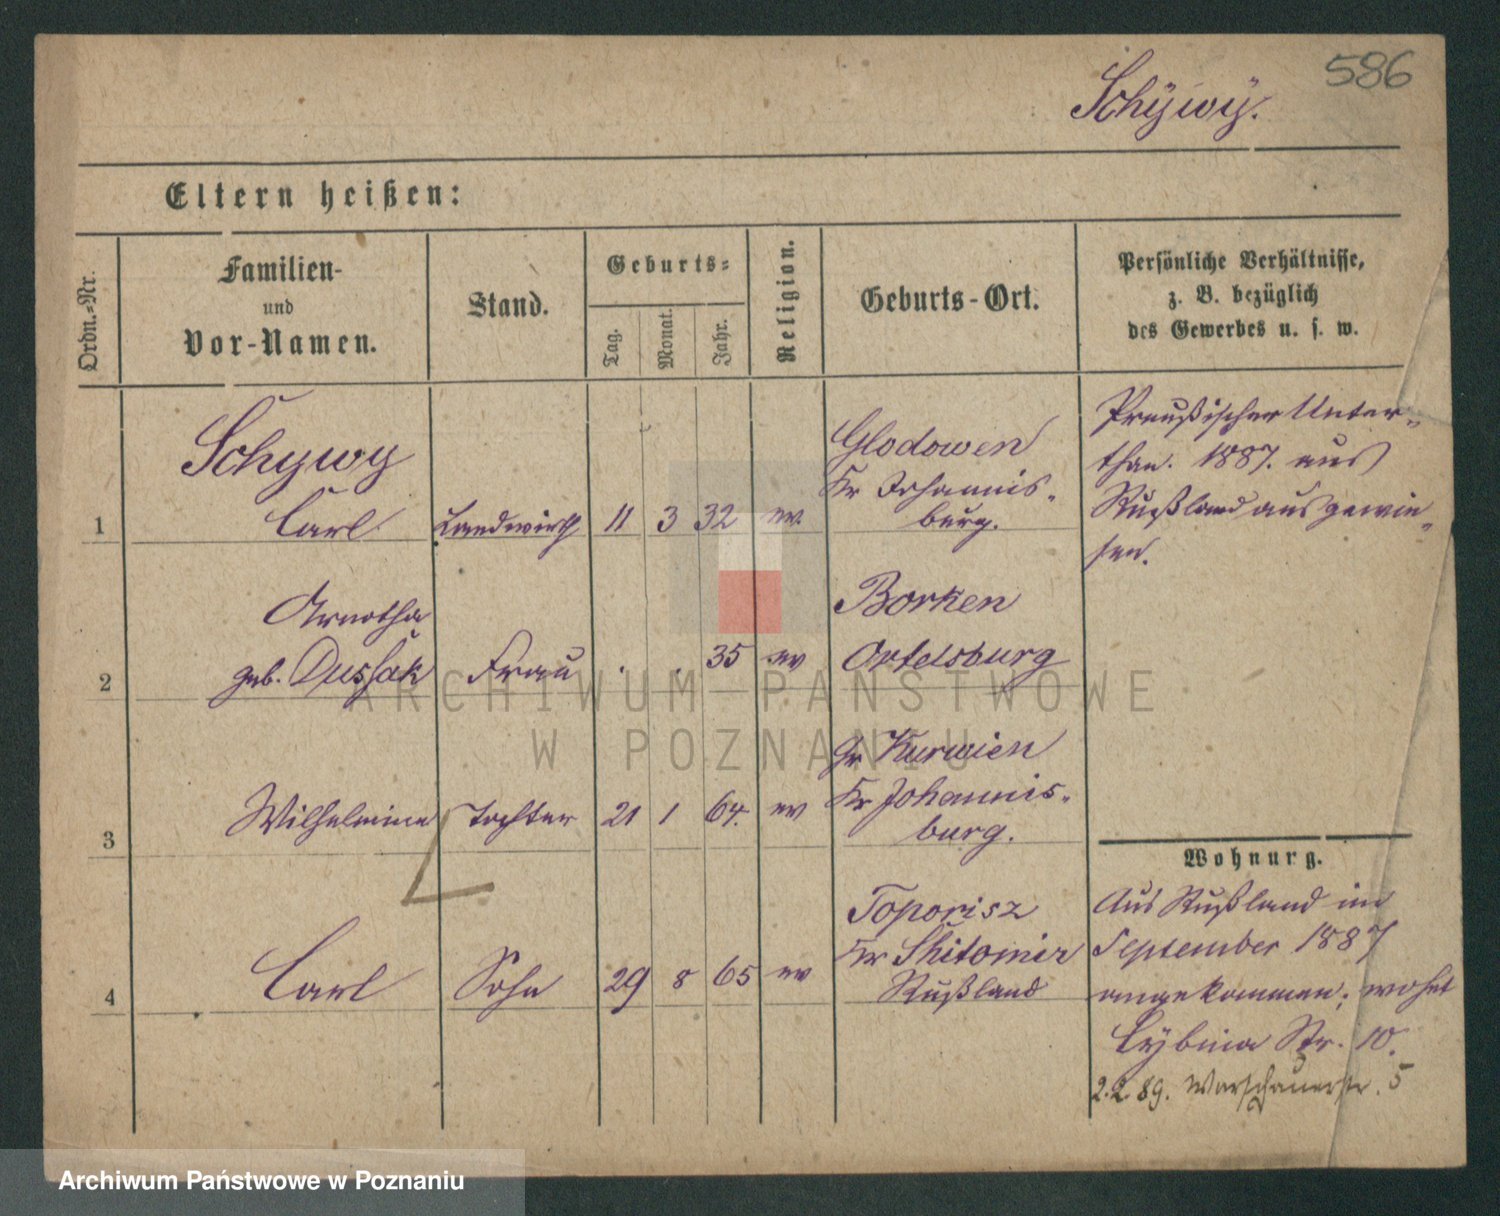 586
Schÿwÿ.
Eltern heißen:
Ordn.-Nr.
Familien-
und
Vor-Namen.
Stand.
Geburts-
Tag.
Monat.
Jahr.
Religion.
Geburts-Ort.
Persönliche Verhältnisse,
z. B. bezüglich
des Gewerbes u. s. w.
1
Schywy
Carl
Landwirth
11
3
32
ev.
Glodowen
Kr Johannis-
burg.
Preußischer Unter-
than. 1887. aus
Rußland ausgewie-
sen.
2
geb. Dussak
Frau
.
.
35
ev
Borken
Ortelsburg
3
Wilhelmine
Tochter
21
1
64.
ev
Gr Kurwien
Kr Johannis-
burg.
4
Carl
Sohn
29
8
65
ev
Toporisz
Kr Shitomir
Rußland
Wohnung.
Aus Rußland im
September 1887
angekommen; wohnt
Cybina Str. 10.
2.2.89. Warschauerstr. 5
ARCHIWUM PAŃSTWOWE
W POZNANIU
Archiwum Państwowe w Poznaniu